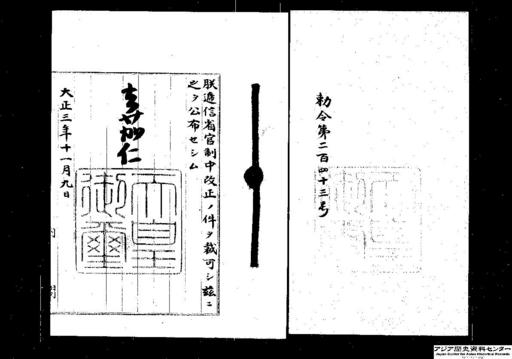 勅令第二百四十三号
朕逓信省官制中改正ノ件ヲ裁可シ茲ニ
之ヲ公布セシム
嘉仁
天皇御璽
大正三年十一月九日
アジア歴史資料センター
Japan Center for Asian Historical Records